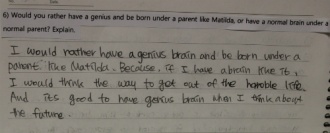 6) Would you rather have a genius and be born under a parent like Matilda, or have a normal brain under a
normal parent? Explain.
I would rather have a genius brain and be born under a
parent like Matilda. Because, if I have a brain like it,
I would think the way to got out of the horoble life.
And its good to have genius brain when I think about
the future.